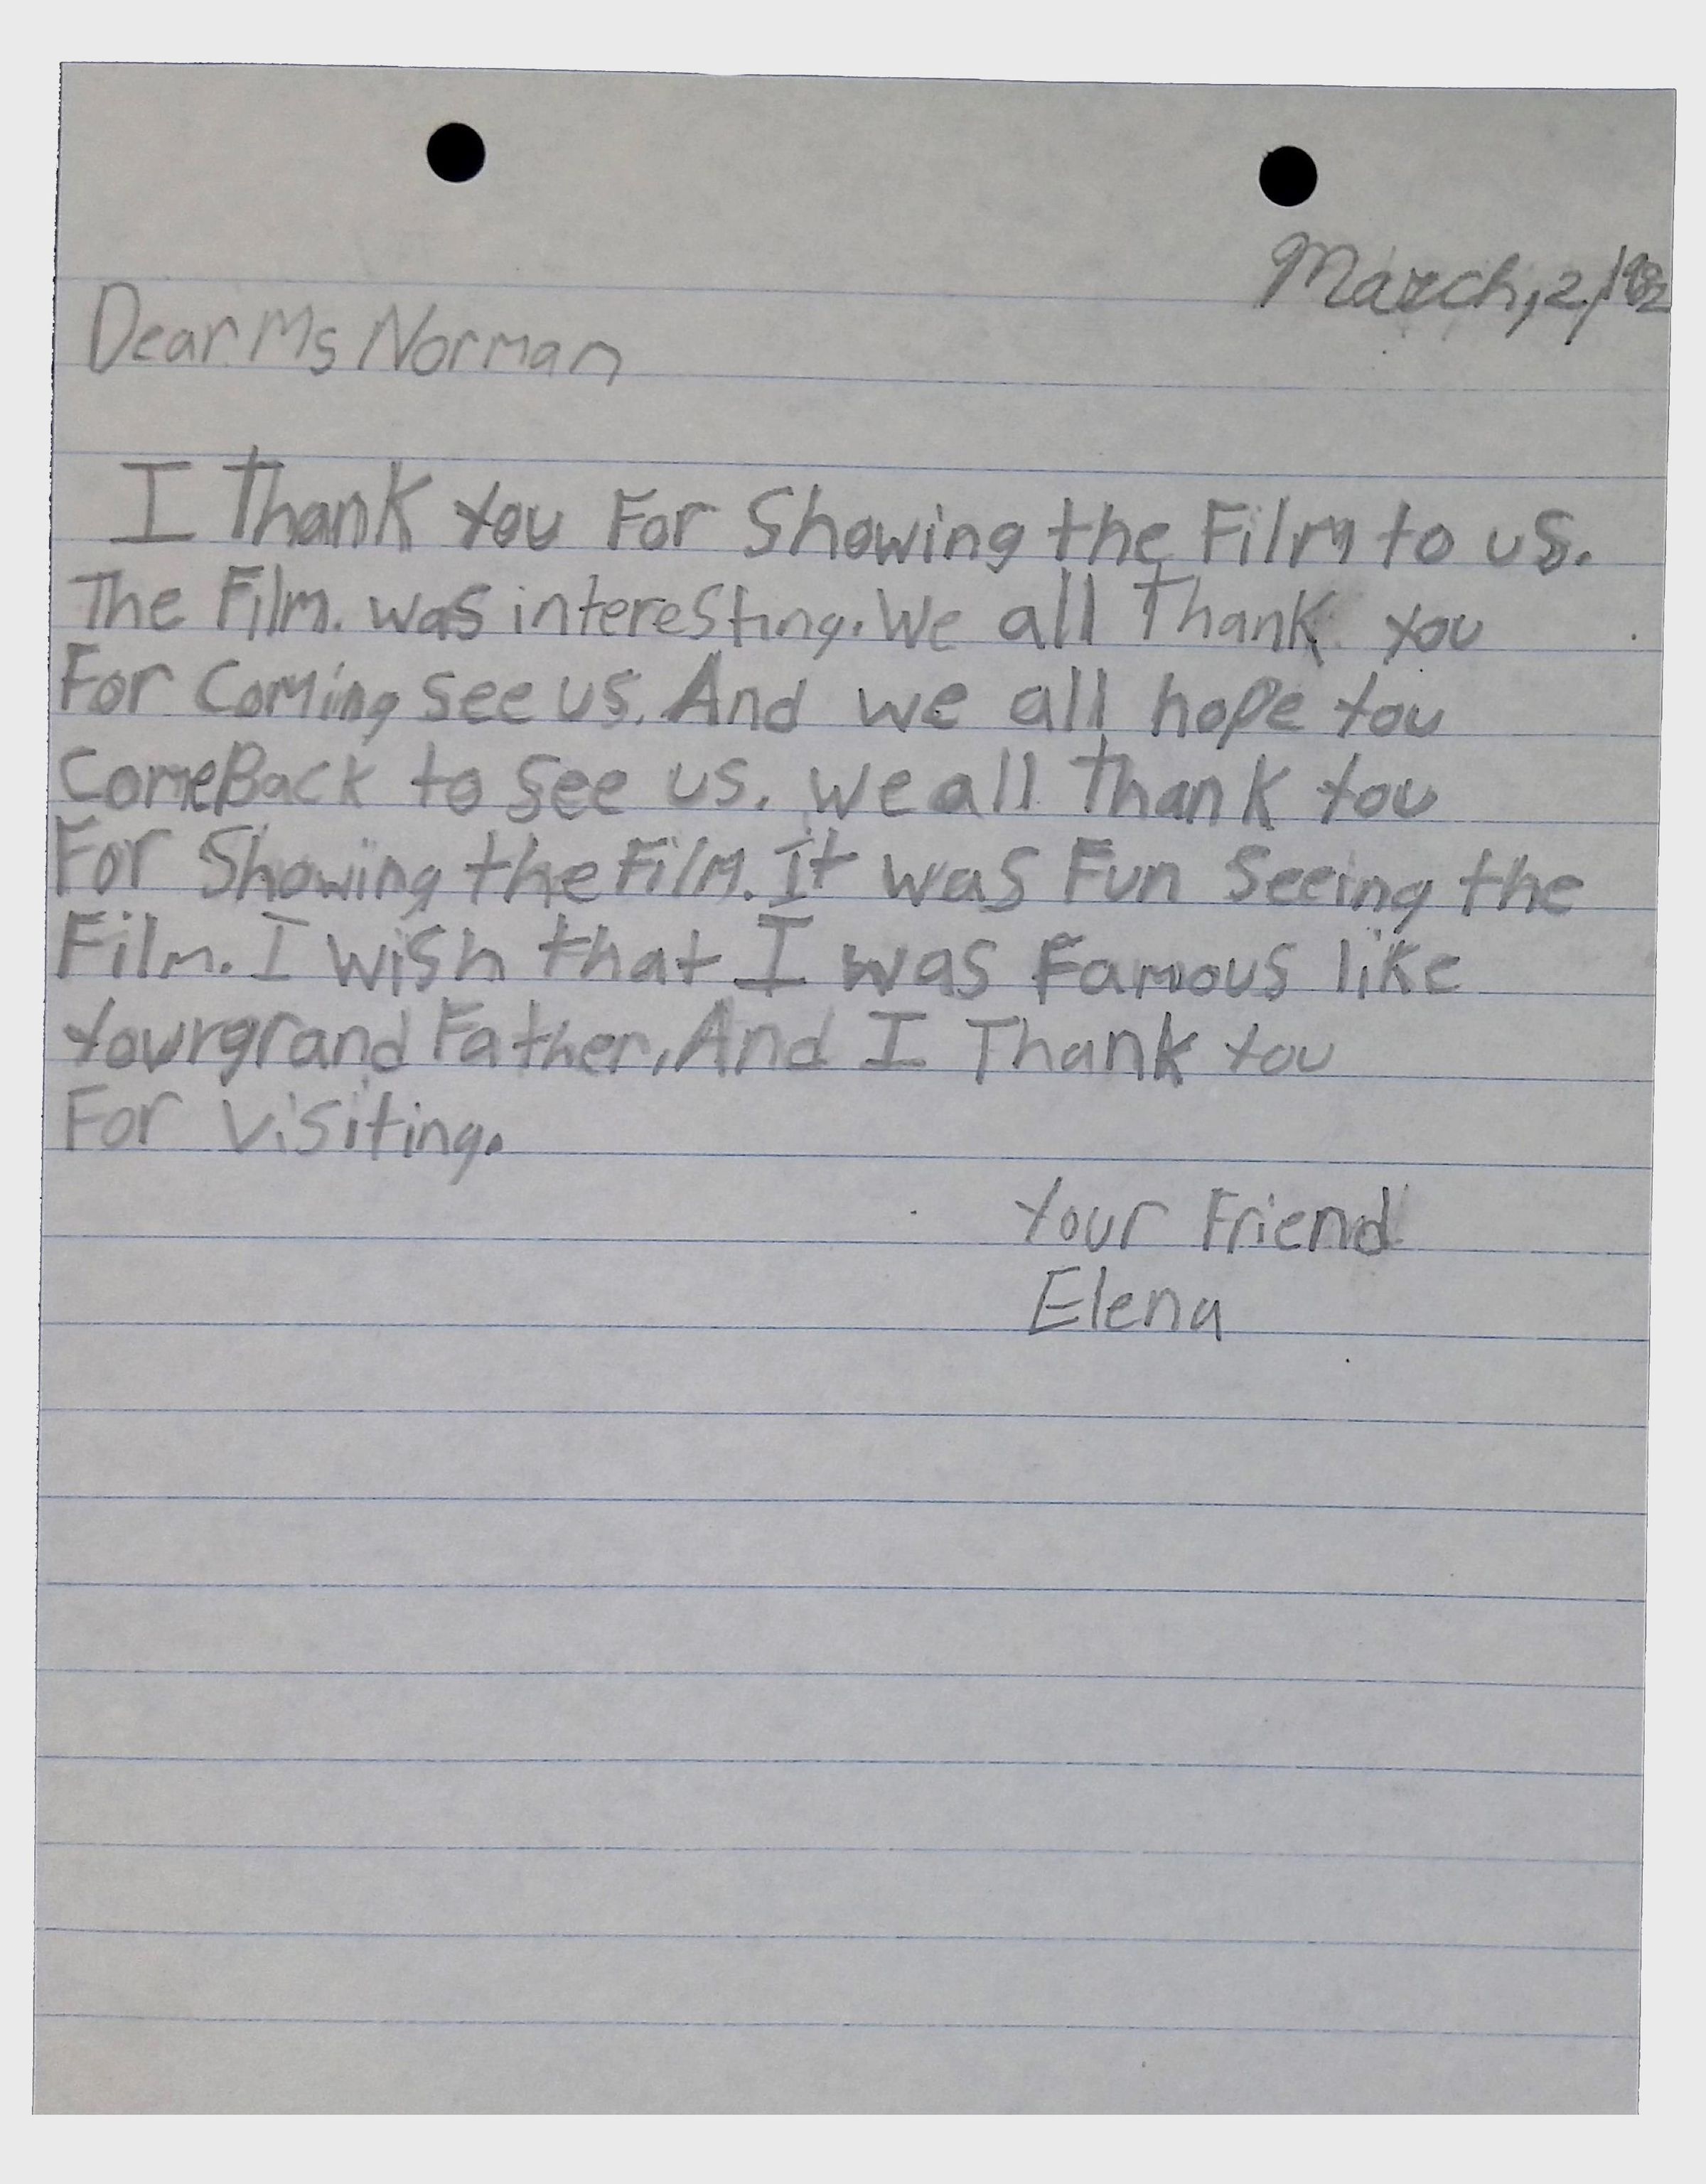 March, 2, 1982
Dear Ms Norman
I Thank you For Showing the Film to us.
The Film. was interesting. We all Thank you
For Coming see us. And we all hope you
ComeBack to See us. we all Thank you
For Showing the Film. It was Fun Seeing the
Film. I wish that I was Famous like
yourgrand Father, And I Thank you
For Visiting.
Your Friend
Elena